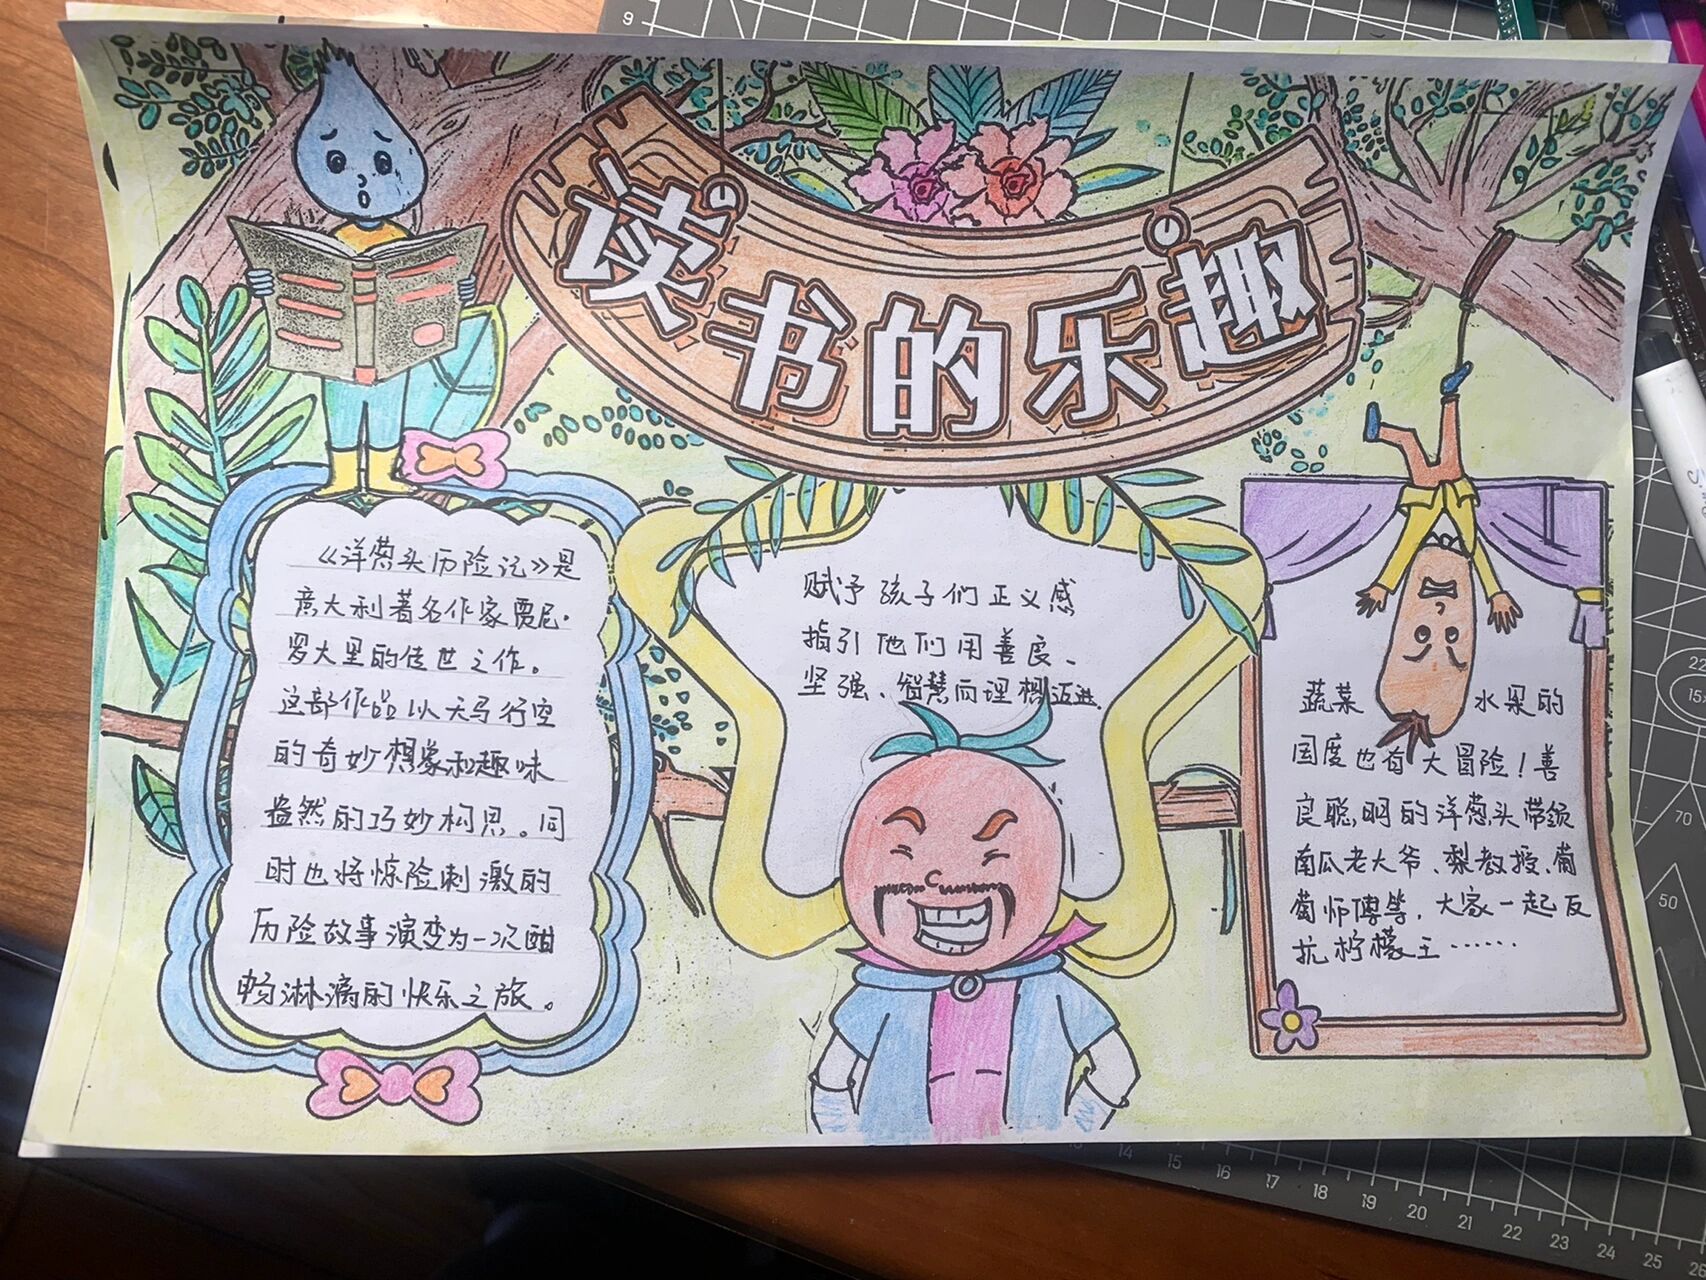 读书的乐趣
《洋葱头历险记》是
意大利著名作家贾尼·
罗大里的传世之作。
这部作品以天马行空
的奇妙想象和趣味
盎然的巧妙构思。同
时也将惊险刺激的
历险故事演变为一次酣
畅淋漓的快乐之旅。
赋予孩子们正义感
指引他们用善良、
坚强、智慧向理想迈进.
蔬菜 水果的
国度也有大冒险!善
良聪明的洋葱头带领
南瓜老大爷、梨教授、葡
萄师傅等,大家一起反
抗柠檬王……
9
13
14
15
16
17
18
19
20
21
22
23
24
25
26
22
15
70
50